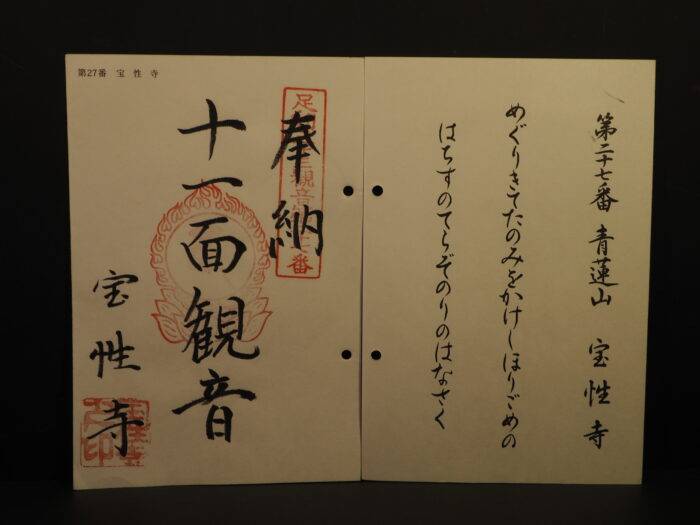 第二十七番 青蓮山 宝性寺
めぐりきてたのみをかけしほりごめの
はちすのてらぞのりのはなさく
第27番 宝性寺
奉納
十一面観音
宝性寺